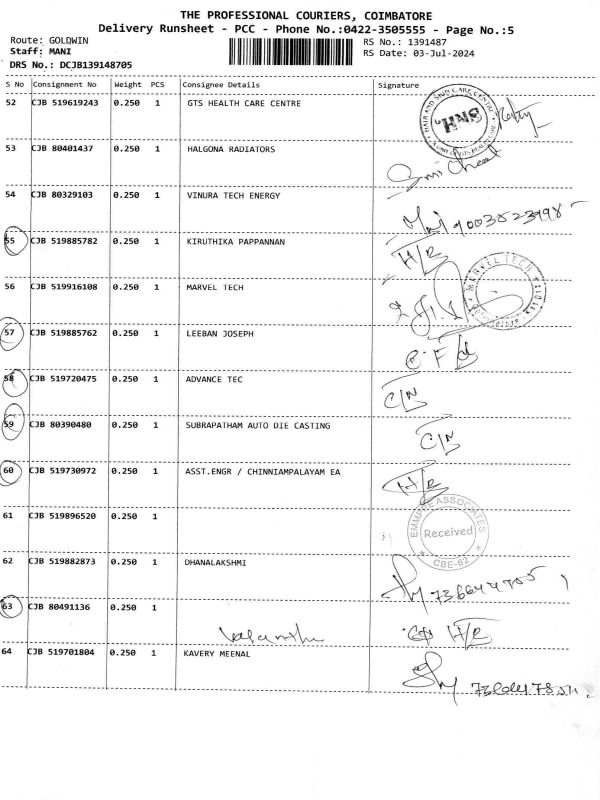 THE PROFESSIONAL COURIERS, COIMBATORE
Delivery Runsheet - PCC - Phone No.:0422-3505555 - Page No.:5
Route: GOLDWIN RS No.: 1391487
Staff: MANI RS Date: 03-Jul-2024
DRS No.: DCJB139148705
S No Consignment No Weight PCS Consignee Details Signature
52 CJB 519619243 0.250 1 GTS HEALTH CARE CENTRE
HAIR AND SKIN CARE CENTRE
53 CJB 80401437 0.250 1 HALGONA RADIATORS
54 CJB 80329103 0.250 1 VINURA TECH ENERGY
55 CJB 519885782 0.250 1 KIRUTHIKA PAPPANNAN H/R
56 CJB 519916108 0.250 1 MARVEL TECH MARVEL TECH
57 CJB 519885762 0.250 1 LEEBAN JOSEPH
58 CJB 519720475 0.250 1 ADVANCE TEC C/N
59 CJB 80390480 0.250 1 SUBRAPATHAM AUTO DIE CASTING C/N
60 CJB 519730972 0.250 1 ASST.ENGR / CHINNIAMPALAYAM EA H/R
61 CJB 519896520 0.250 1 ASSOCIATES Received CBE-62
62 CJB 519882873 0.250 1 DHANALAKSHMI
63 CJB 80491136 0.250 1 H/R
64 CJB 519701804 0.250 1 KAVERY MEENAL